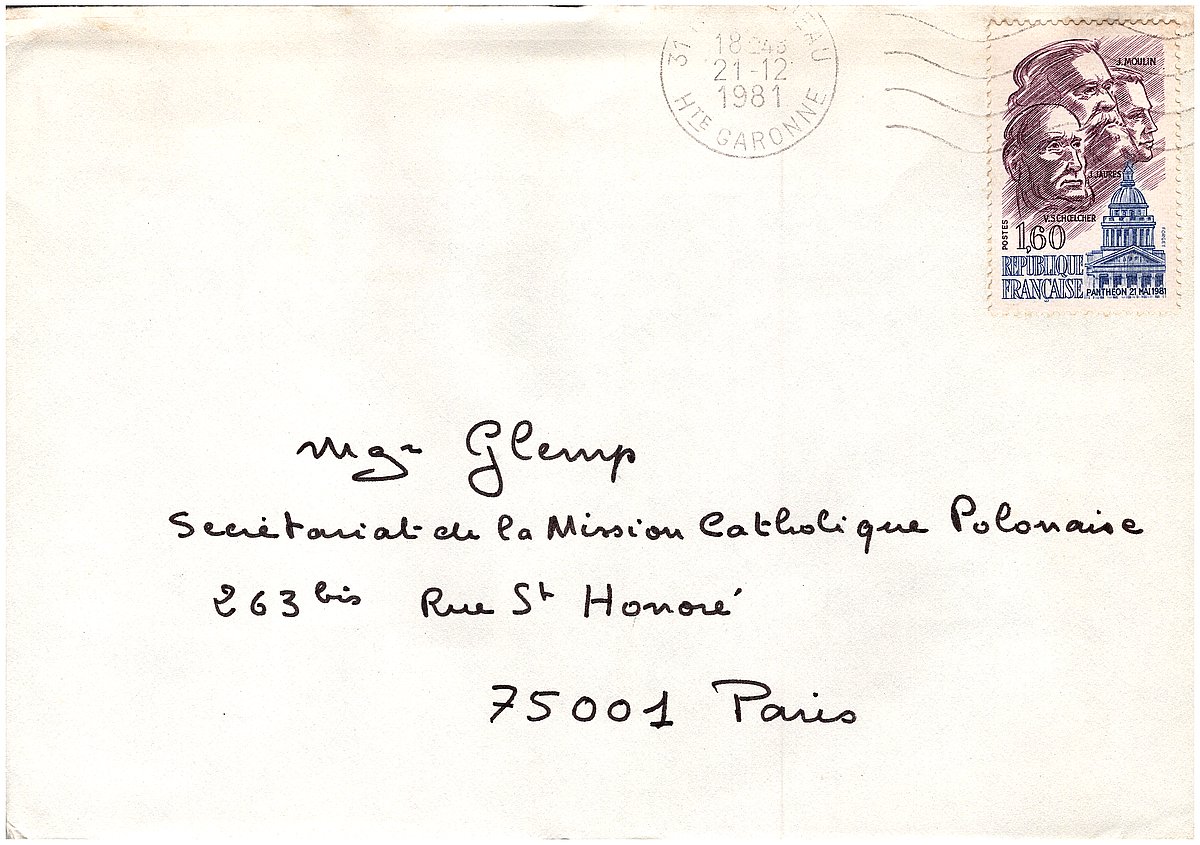 31
EAU
18 H
21-12
1981
HTE GARONNE
J. MOULIN
J. JAURES
V. SCHŒLCHER
POSTES
1,60
REPUBLIQUE
FRANÇAISE
PANTHEON 21 MAI 1981
Mgr Glemp
Secrétariat de la Mission Catholique Polonaise
263 bis Rue St Honoré
75001 Paris